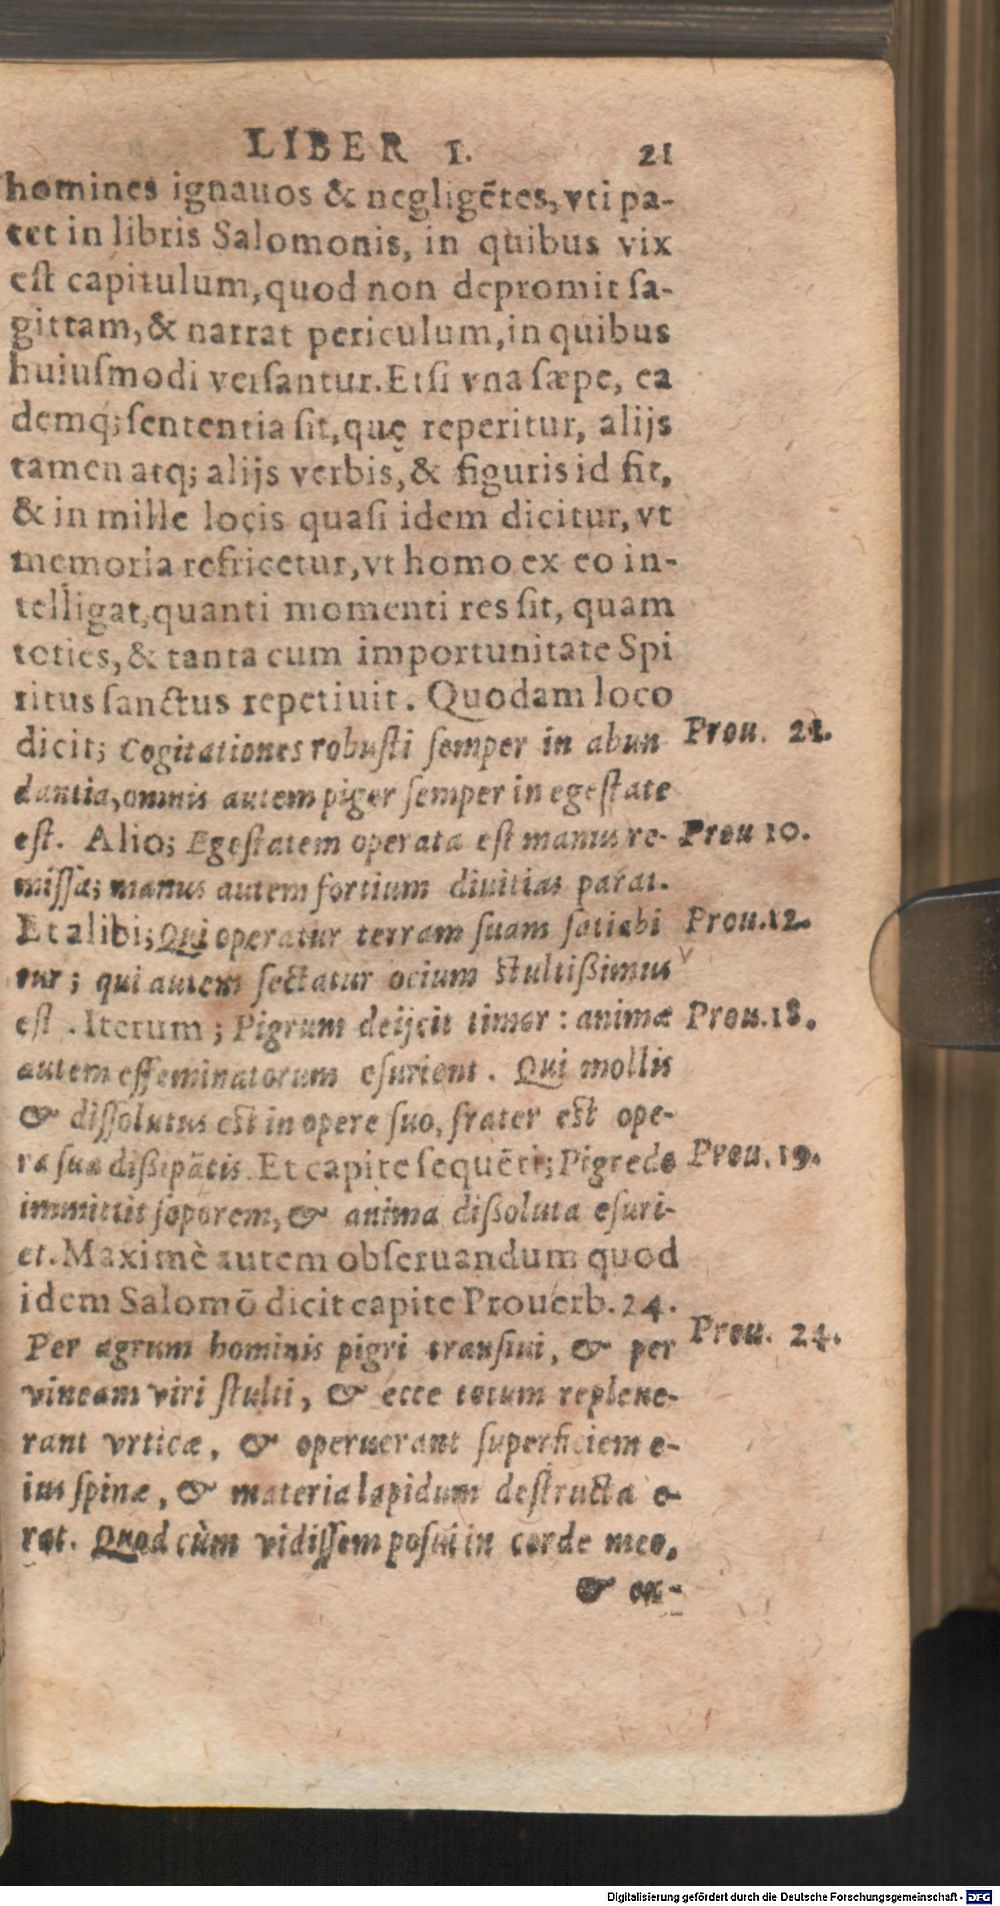 LIBER I. 21
homines ignauos & negligẽtes, vti pa-
tet in libris Salomonis, in quibus vix
eſt capitulum, quod non depromit ſa-
gittam, & narrat periculum, in quibus
huiuſmodi verſantur. Etſi vna ſæpe, ea
demq; ſententia ſit, quę reperitur, alijs
tamen atq; alijs verbis, & figuris id fit,
& in mille locis quaſi idem dicitur, vt
memoria refricetur, vt homo ex eo in-
telligat, quanti momenti res ſit, quam
toties, & tanta cum importunitate Spi
ritus ſanctus repetiuit. Quodam loco
dicit; Cogitationes robuſti ſemper in abun Prou. 21.
dantia, omnis autem piger ſemper in egeſtate
eſt. Alio; Egeſtatem operata eſt manus re- Prou 10.
miſſa; manus autem fortium diuitias parat.
Et alibi; Qui operatur terram ſuam ſatiabi Prou. 12.
tur; qui autem ſectatur ocium ſtultißimus
eſt. Iterum; Pigrum deijcit timor: animæ Prou. 18.
autem effeminatorum eſurient. Qui mollis
& diſſolutus eſt in opere ſuo, frater eſt ope-
ra ſua dißipãtis. Et capite ſequẽti; Pigredo Prou. 19.
immittit ſoporem, & anima dißoluta eſuri-
et. Maximè autem obſeruandum quod
idem Salomõ dicit capite Prouerb. 24.
Per agrum hominis pigri tranſiui, & per Prou. 24.
vineam viri ſtulti, & ecce totum replene-
rant vrticæ, & operuerant ſuperficiem e-
ius ſpinæ, & materia lapidum deſtructa e-
rat. Quod cùm vidiſſem poſui in corde meo,
& ex-
Digitalisierung gefördert durch die Deutsche Forschungsgemeinschaft - DFG